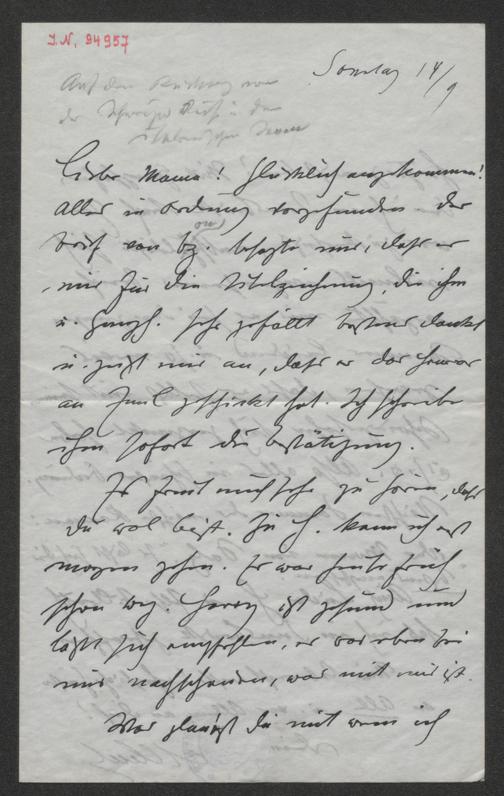 I.N. 94957
Sonntag 14/9
Auf dem
der Schweizer
Liebe Mama! Glücklich angekommen!
Alles in Ordnung vorgefunden der
Brief von bz. besagte nur, dass er
mir für die Titelzeichnung, die ihm
u. sehr gefällt bestens dankt
u. zeigt mir an, dass er das Honorar
an geschickt hat. Ich schreibe
ihm sofort die Bestätigung.
Es freut mich sehr zu hören, dass
du wol bist. Zu H. kann ich erst
morgen gehen. Er war heute früh
schon weg. Harry ist gesund und
lässt sich empfehlen, er war eben bei
mir nachschauen, was mit mir ist.
Was glaubst du mit wem ich